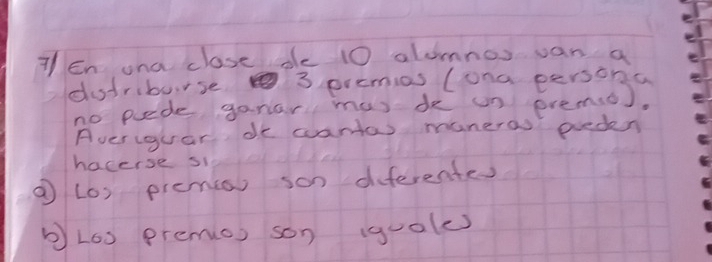 7) En una clase de 10 alumnos van a
distribuirse 3 premios (una persona
no puede ganar mas de un premio).
Averiguar de cuantas maneras pueden
hacerse si
a) Los premios son diferentes
b) Los premios son iguales